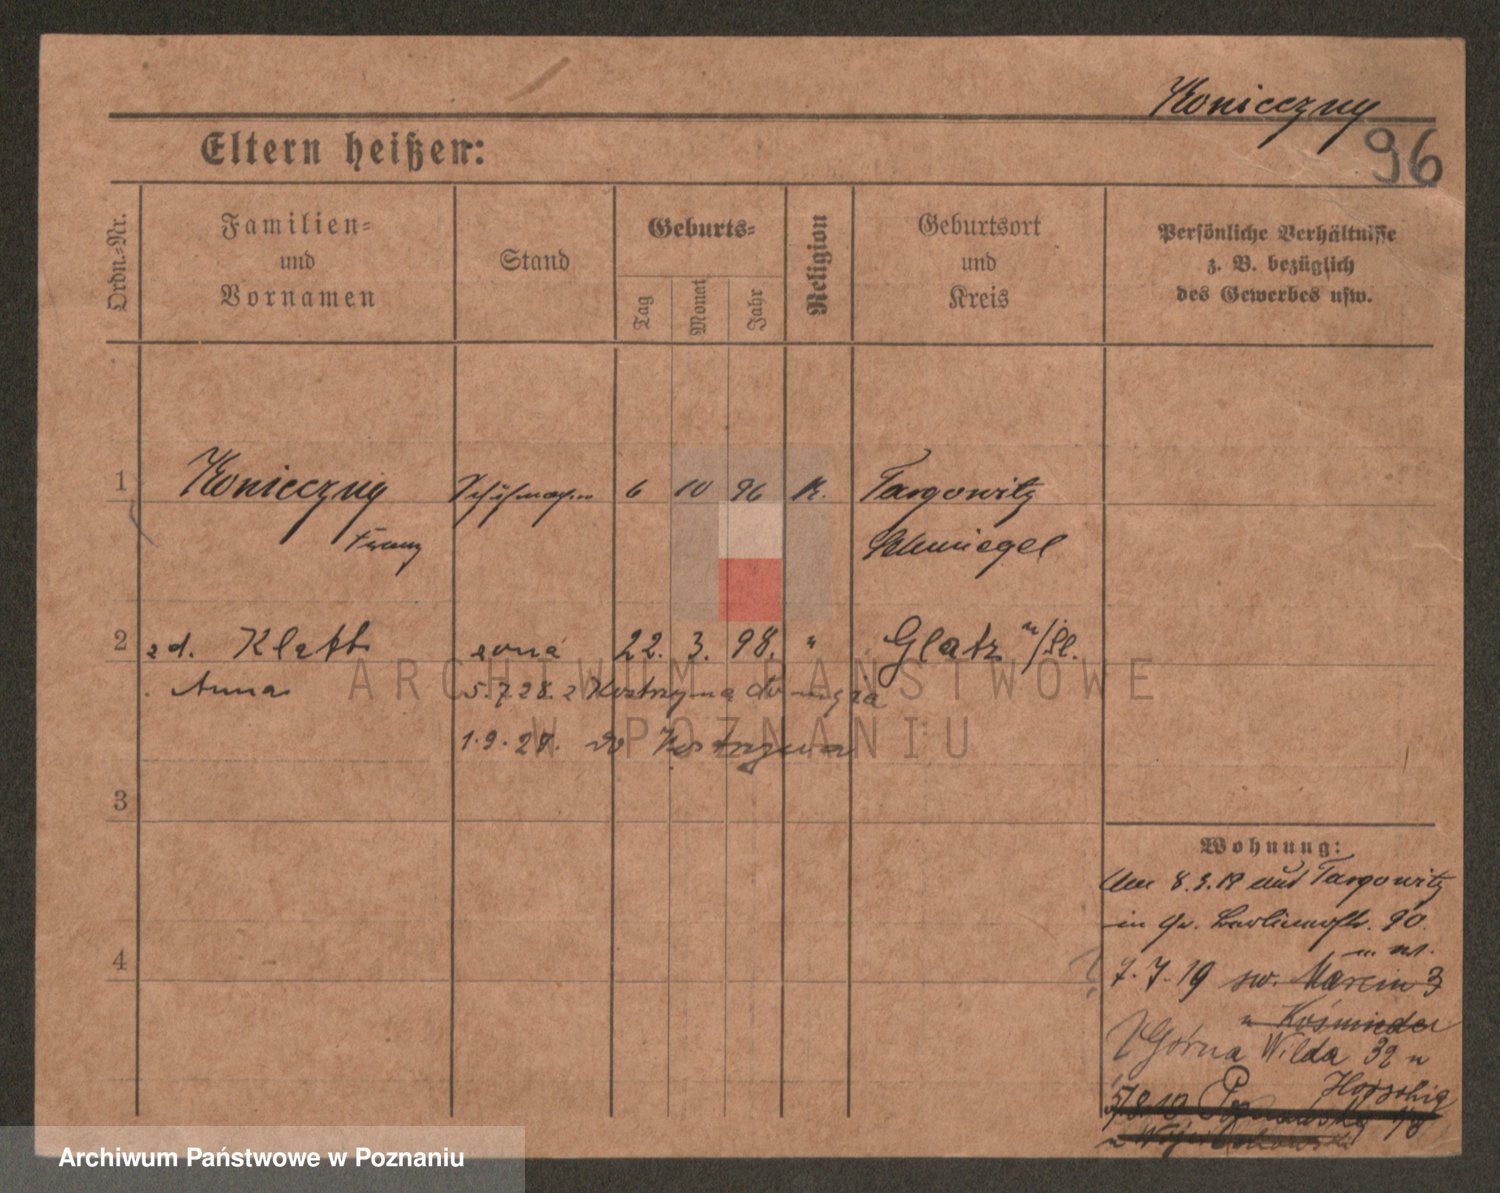 Konieczny
96
Eltern heißen:
Ordn.-Nr.
Familien-
und
Vornamen
Stand
Geburts-
Tag
Monat
Jahr
Religion
Geburtsort
und
Kreis
Persönliche Verhältnisse
z. B. bezüglich
des Gewerbes usw.
1
Konieczny
Franz
6 10 96 K.
Targowitz
Schmiegel
2
Klatt
Anna
żona 22. 3. 98. "
Glatz
5.7.28. z Kostrzyna do męża
1.9.28. do Kostrzyna
3
4
Wohnung:
8.3.19 aus Targowitz
in 90.
7.7.19 św. Marcin 3
Górna Wilda 32 u
ARCHIWUM PAŃSTWOWE
W POZNANIU
Archiwum Państwowe w Poznaniu